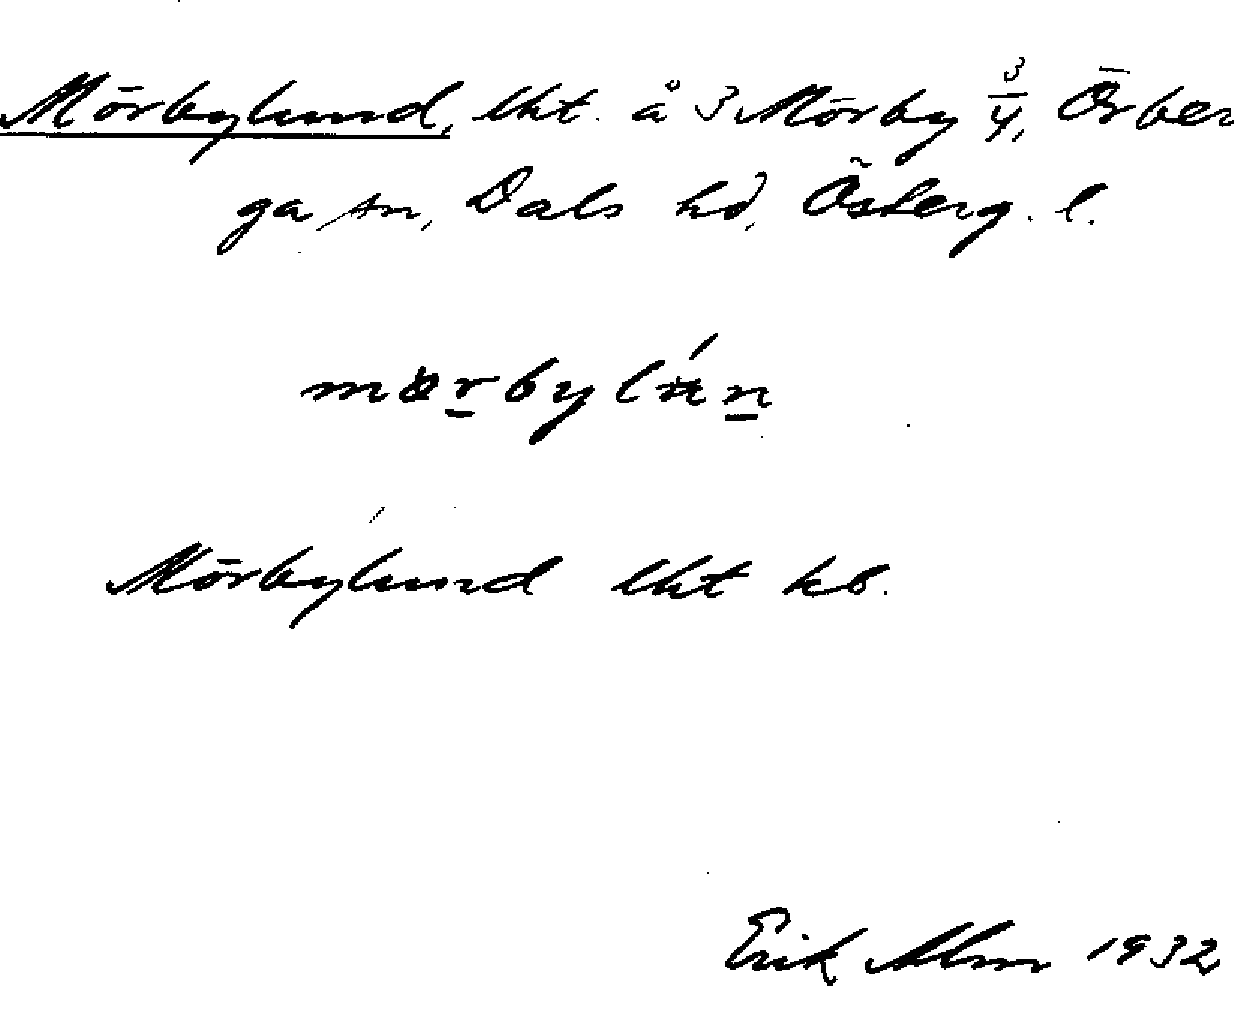 Mörbylund, lht. å 3 Mörby 3/4, Örber
ga sn, Dals hd, Österg. l.
mörbylún
Mörbylund lht kb.
Erik Alm 1932